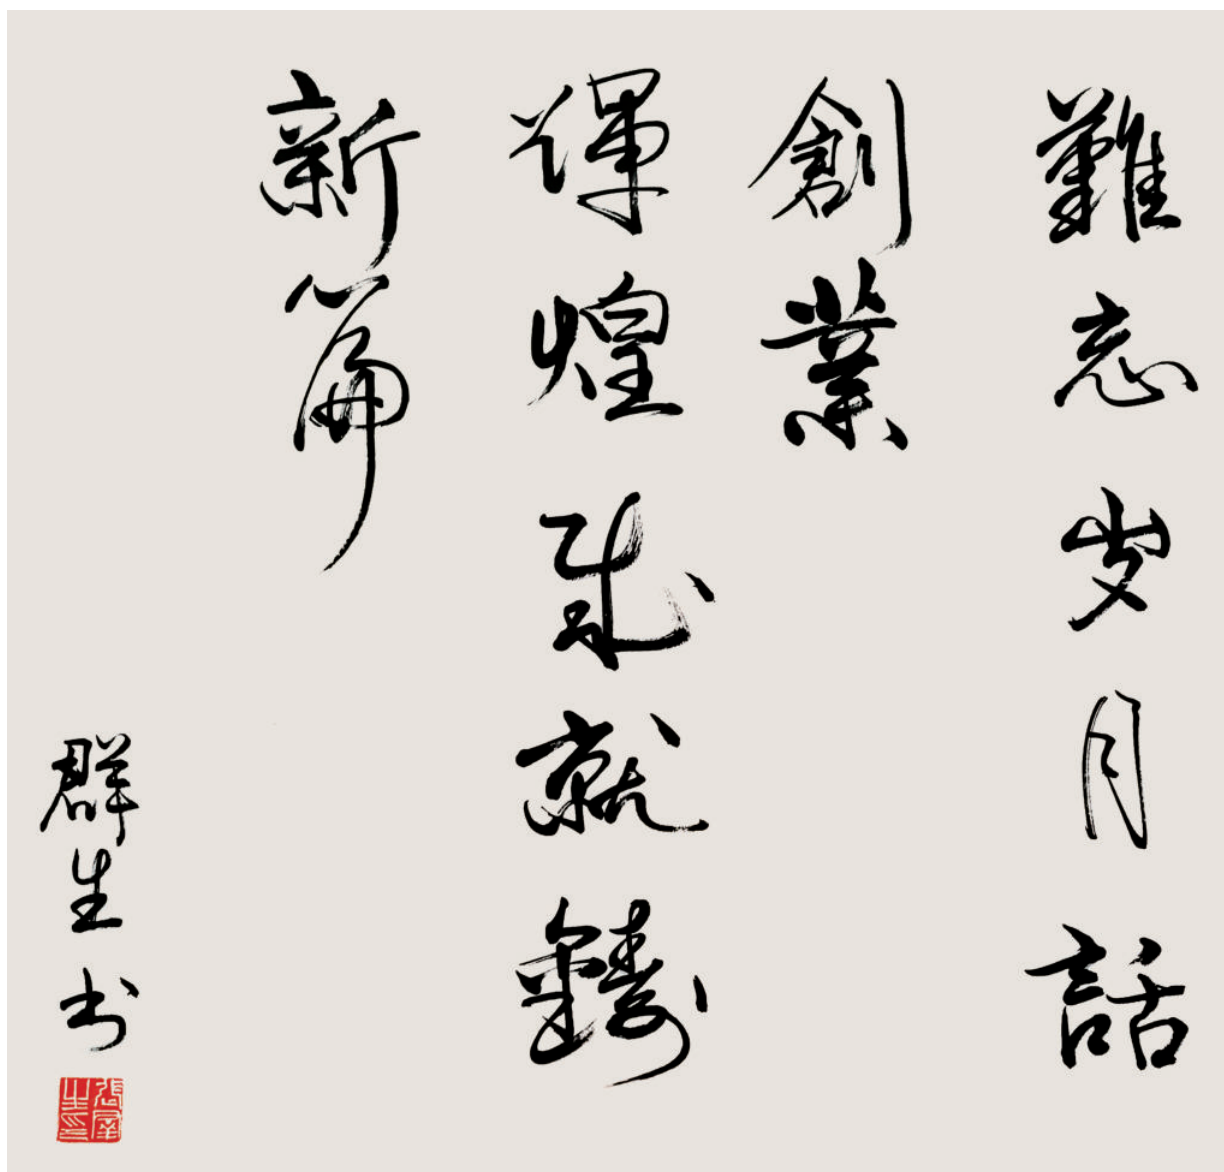 難忘岁月話
創業
輝煌成就鑄
新篇
群生书